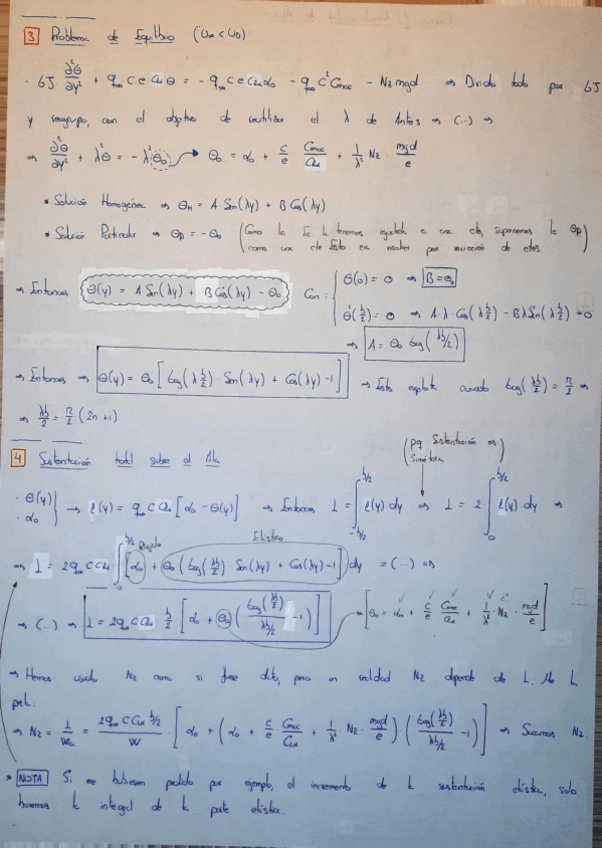 3 Problema de Equilibrio (U∞ < UD)
· GJ ∂²θ/∂y² + q∞ c e CLα θ = - q∞ c e CLα α0 - q∞ c² Cmca - Nz mgd ⇒ Divido todo por GJ
y reagrupo, con el objetivo de reutilizar el λ de Antes ⇒ (...) ⇒
⇒ ∂²θ/∂y² + λ²θ = - λ² θ0 → θ0 = α0 + c/e Cmca/CLα + 1/λ² Nz · mgd/e
* Solución Homogénea ⇒ θH = A Sen(λy) + B Cos(λy)
* Solución Particular ⇒ θP = - θ0 (Como la Ec la tenemos igualada a una cte, suponemos la θp
como una cte
⇒ Entonces θ(y) = A Sen(λy) + B Cos(λy) - θ0 Con: θ(0) = 0 ⇒ B = θ0
θ'(b/2) = 0 ⇒ A λ Cos(λ b/2) - Bλ Sen(λ b/2) = 0
⇒ A = θ0 tag(λb/2)
⇒ Entonces ⇒ θ(y) = θ0 [tag(λ b/2) · Sen(λy) + Cos(λy) - 1] ⇒ Esto explota cuando tag(λb/2) = π/2 ⇒
⇒ λb/2 = π/2 (2n+1)
4 Sustentación total sobre el Ala
(pq Sustentación es
Simétrica)
· θ(y)
· α0 → l(y) = q∞ c CLα [α0 - θ(y)] ⇒ Entonces L = ∫ -b/2 b/2 l(y) dy ⇒ L = 2 ∫ 0 b/2 l(y) dy ⇒
Rígido Elástico
⇒ L = 2q∞ c CLα ∫ 0 b/2 [α0 + θ0 (tag(λb/2) · Sen(λy) + Cos(λy) - 1)] dy = (...) ⇒
⇒ (...) ⇒ L = 2q∞ c CLα b/2 [α0 + θ0 (tag(λb/2)/λb/2 - 1)] [θ0 = α0 + c/e Cmca/CLα + 1/λ² · Nz · mgd/e]
⇒ Hemos usado Nz como si fuese dato, pero en realidad Nz depende de L.
⇒ Nz = L/W = 2q∞ c CLα b/2 / W · [α0 + (α0 + c/e Cmca/CLα + 1/λ² Nz · mgd/e) · (tag(λb/2)/λb/2 - 1)] ⇒ Sacamos Nz
* NOTA Si me hubiesen pedido por ejemplo, el incremento de la sustentación elástica, solo
hacemos la integral de la parte elástica.